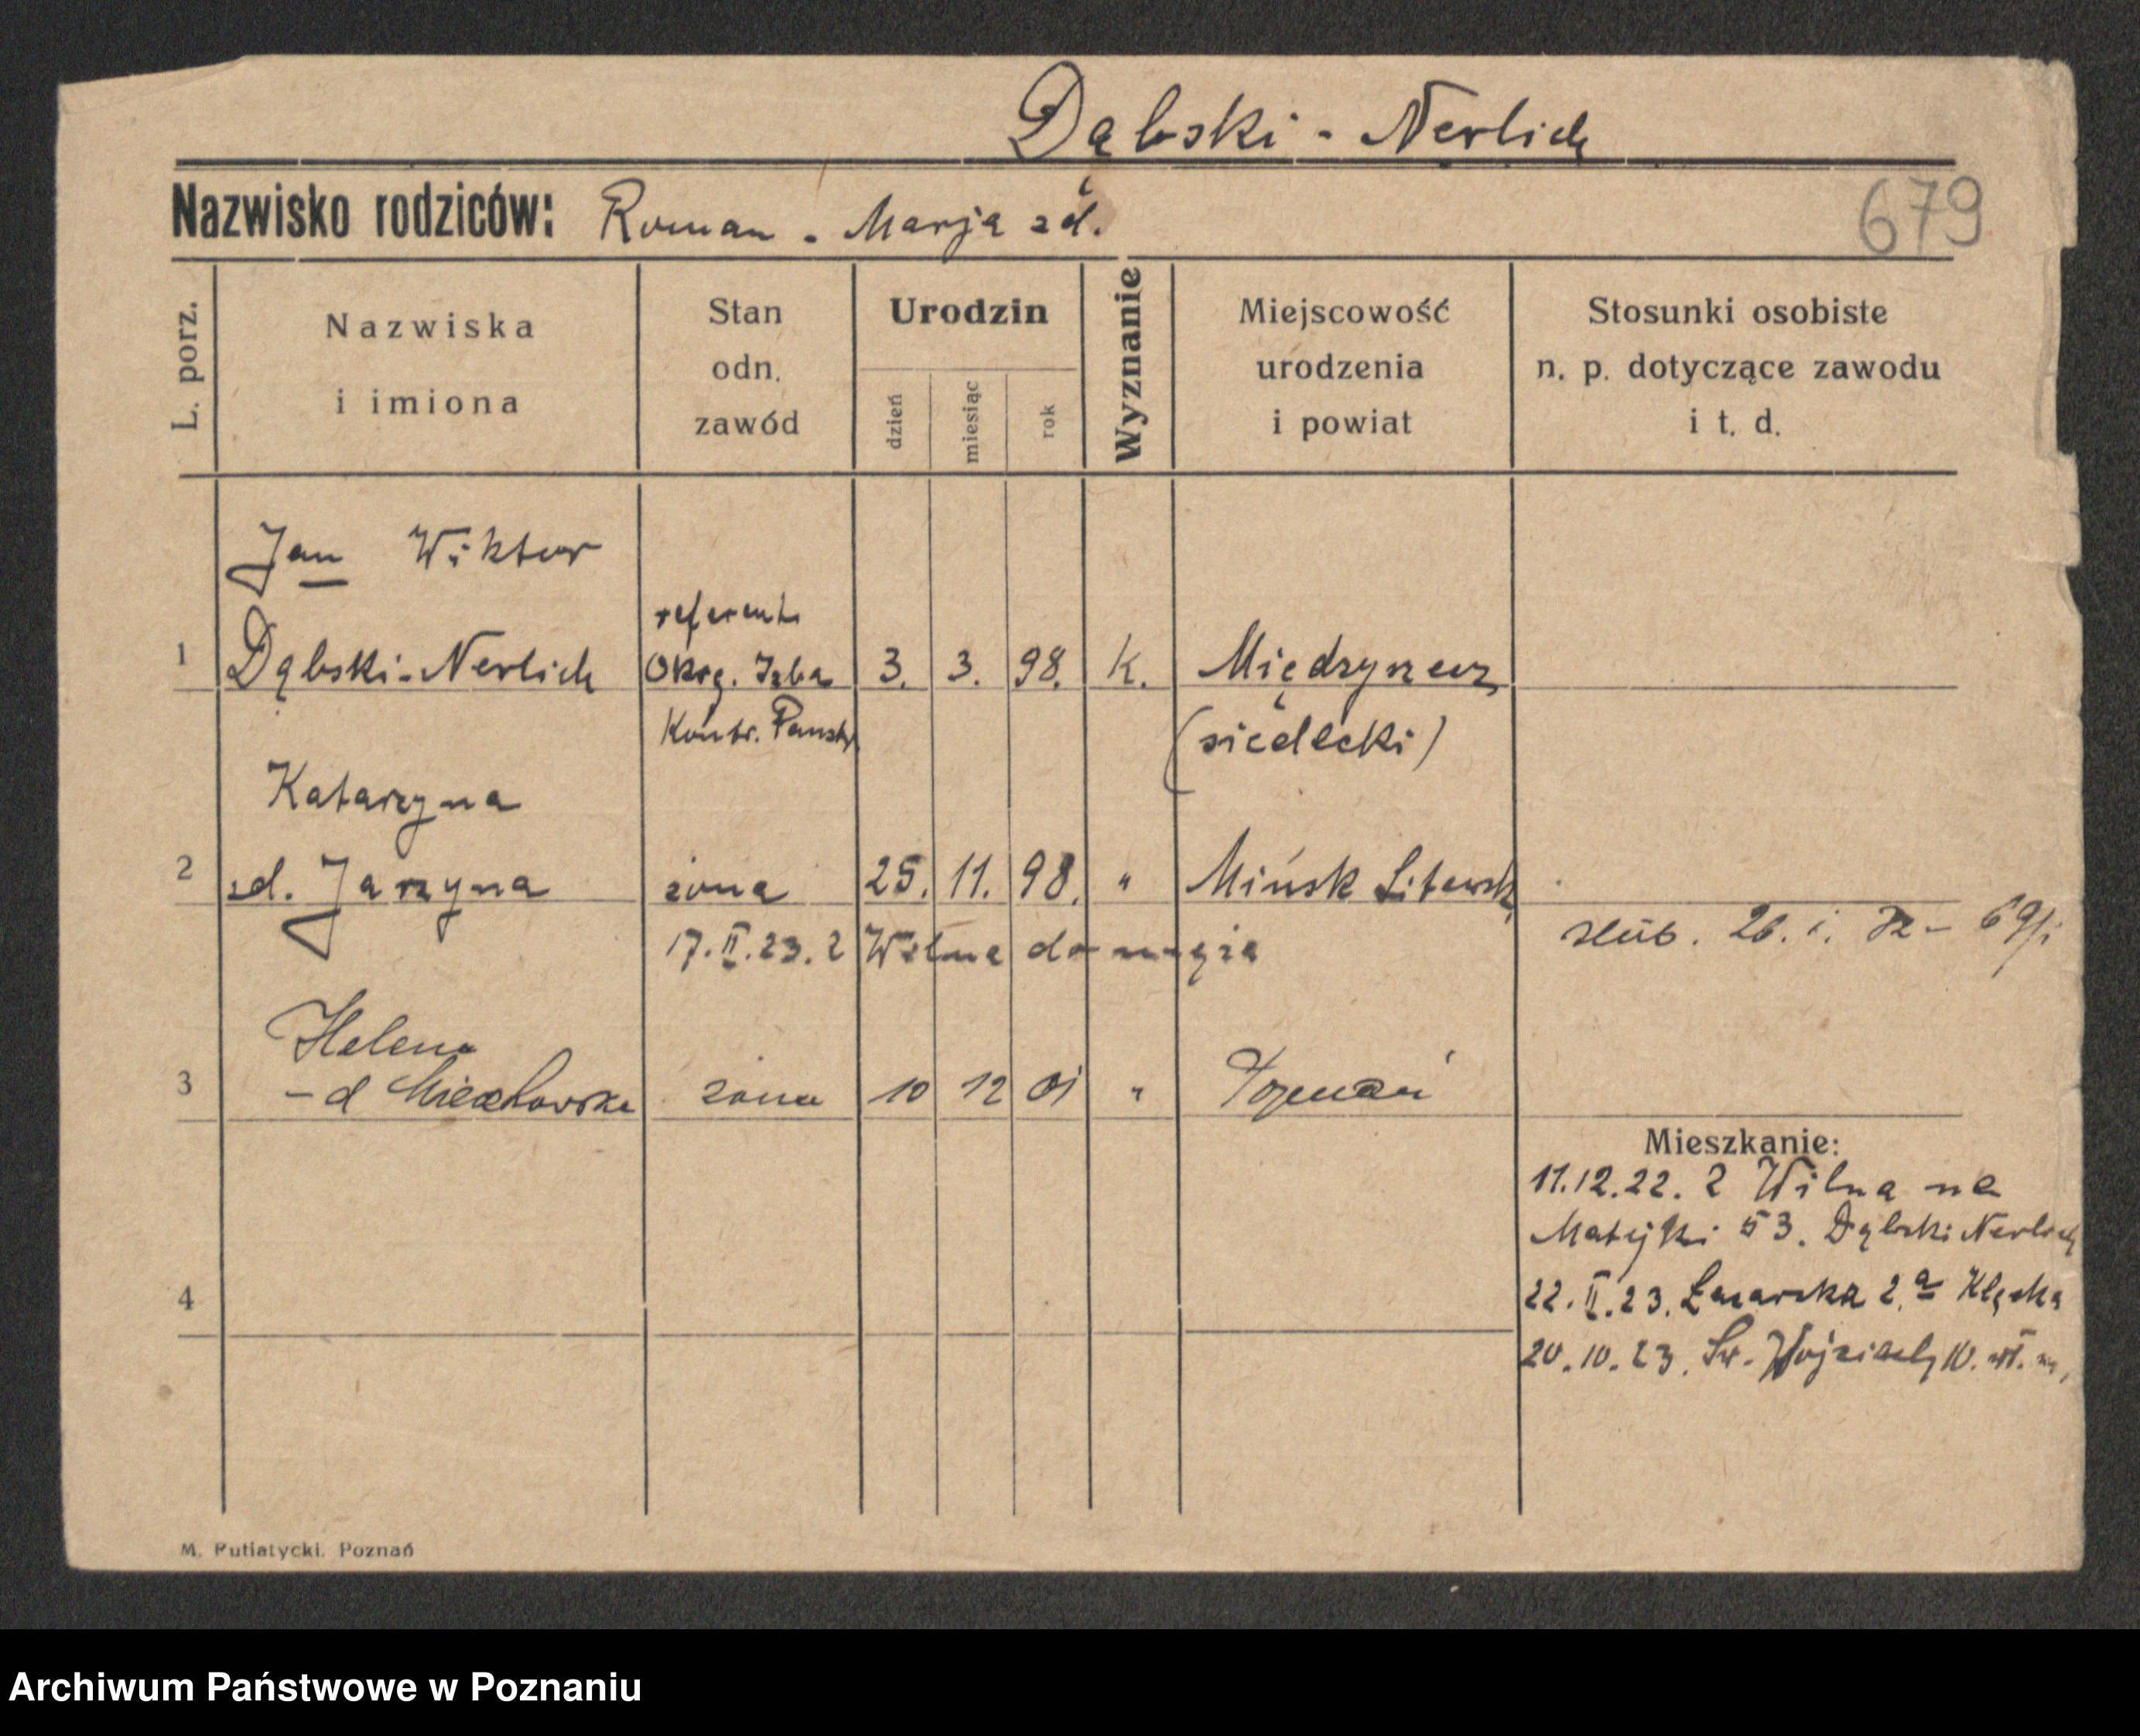 Dąbski - Nerlich
Nazwisko rodziców: Roman - Marja zd.
679
L. porz.
Nazwiska
i imiona
Stan
odn.
zawód
Urodzin
dzień
miesiąc
rok
Wyznanie
Miejscowość
urodzenia
i powiat
Stosunki osobiste
n. p. dotyczące zawodu
i t. d.
Jan Wiktor
referent
1 Dąbski-Nerlich Okrg. Izba 3. 3. 98. K. Międzyrzecz
Kontr. Państw (siedlecki)
Katarzyna
2 zd. Jarzyna żona 25. 11. 98. " Mińsk Litewsk
17.II.23. z Wilna do męża
ślub. 26. i.
Helena
3 -d żona 10 12 01 " Poznań
Mieszkanie:
11.12.22. z Wilna na
Matejki 53. Dąbski Nerlich
22.II.23. Łazarska 2.a
4
20.10.23. Św. Wojciech 10.
M. Putiatycki. Poznań
Archiwum Państwowe w Poznaniu